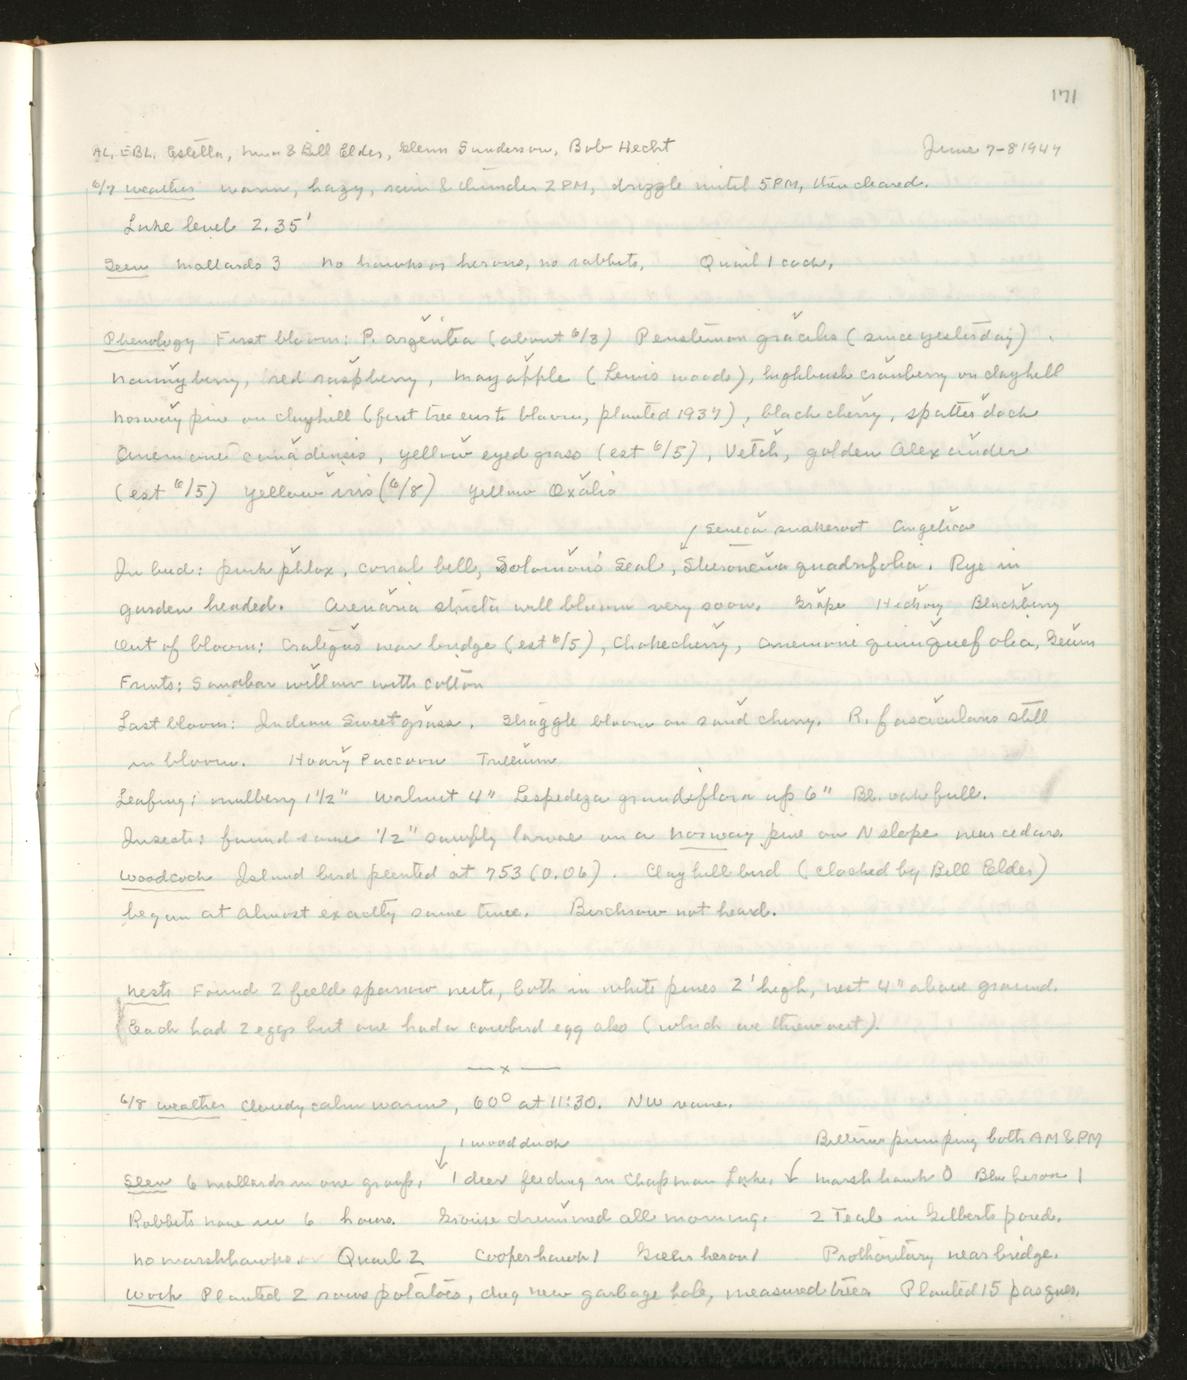 171
AL, EBL, Estella, Nina & Bill Elder, Glenn Sanderson, Bob Hecht June 7-8 1947
6/7 weather warm, hazy, rain & thunder 2 PM, drizzle until 5PM, then cleared.
Lake level 2.35'
Seen Mallards 3 No hawks or herons, no rabbits, Quail 1 cock,
Phenology First bloom: P. argentea (about 6/3) Penstemon gracilis (since yesterday).
Nannyberry, red raspberry, mayapple (Lewis woods), highbush cranberry on clayhill
Norway pine on clayhill (first tree ever to bloom, planted 1937), black cherry, spatterdock
Anemone canadensis, yellow eyed grass (est 6/5), Vetch, golden Alexander
(est 6/5) yellow iris (6/8) yellow Oxalis
Seneca snakeroot Angelica
In bud: pink phlox, corral bell, Solomon's Seal, Steironema quadrifolia. Rye in
garden headed. Arenaria stricta will bloom very soon. Grape Hickory Blackberry
Out of bloom: Crategus near bridge (est 6/5), Chokecherry, Anemone quinquefolia, Geum
Fruits: Sandbar willow with cotton
Last bloom: Indian Sweetgrass. Straggle bloom on sand cherry. R. fascicularis still
in bloom. Hoary Puccoon Trillium
Leafing: mulberry 1 1/2" Walnut 4" Lespedeza grandiflora up 6" Bl. oak full.
Insects: found some 1/2" sawfly larvae on a Norway pine on N slope near cedars.
Woodcock Island bird peented at 753 (0.06). Clayhill bird (clocked by Bill Elder)
began at almost exactly same time. Birchrow not heard.
Nests Found 2 field sparrow nests, both in white pines 2' high, nest 4" above ground.
Each had 2 eggs but one had a cowbird egg also (which we threw out).
— x —
6/8 weather Cloudy calm warm, 60° at 11:30. NW vane.
1 woodduck Bittern pumping both AM & PM
Seen 6 mallards in one group, 1 deer feeding in Chapman Lake, marsh hawk 0 Blue heron 1
Rabbits none in 6 hours. Grouse drummed all morning. 2 Teal in Gilberts pond.
No marshhawks. Quail 2 Cooper hawk 1 Green heron 1 Prothonitary near bridge.
Work Planted 2 rows potatoes, dug new garbage hole, measured trees Planted 15 pasques.